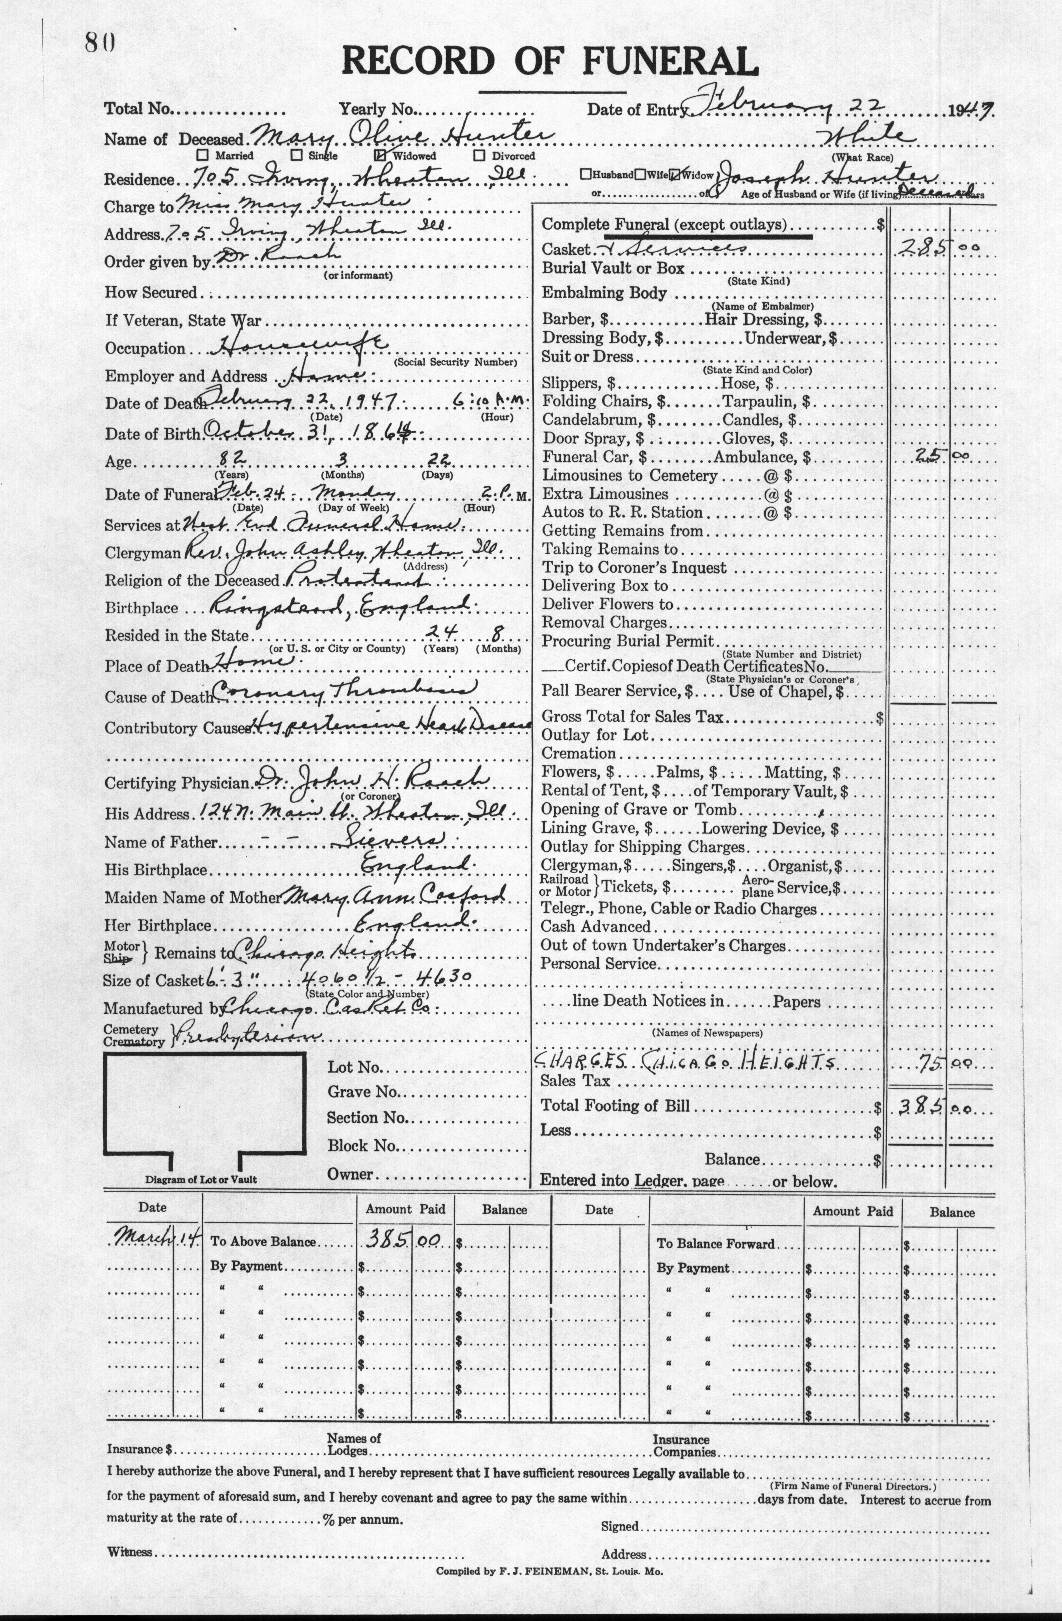 80
RECORD OF FUNERAL
Total No. Yearly No. Date of Entry February 22 1947.
Name of Deceased. Mary Olive Hunter White
☐ Married ☐ Single ☑ Widowed ☐ Divorced (What Race)
Residence. 705 Irving, Wheaton, Ill. ☐Husband☐Wife☑Widow Joseph Hunter
or of Age of Husband or Wife (if living) Deceased Years
Charge to Miss Mary Hunter
Address. 705 Irving, Wheaton Ill.
Order given by Dr. Raach
(or informant)
How Secured.
If Veteran, State War
Occupation Housewife
(Social Security Number)
Employer and Address Home.
Date of Death February 22, 1947. 6:10 A.M.
(Date) (Hour)
Date of Birth. October 31, 1864.
Age 82 3 22
(Years) (Months) (Days)
Date of Funeral Feb. 24 - Monday 2. P. M.
(Date) (Day of Week) (Hour)
Services at West End Funeral Home.
Clergyman Rev. John Ashley, Wheaton, Ill.
(Address)
Religion of the Deceased Protestant
Birthplace Ringstead, England.
Resided in the State 24 8
(or U. S. or City or County) (Years) (Months)
Place of Death Home.
Cause of Death Coronary Thrombosis
Contributory Causes Hypertensive Heart Disease
Certifying Physician. Dr. John H. Raach
(or Coroner)
His Address. 124 N. Main St. Wheaton, Ill.
Name of Father - - Sievers
His Birthplace England.
Maiden Name of Mother Mary Ann Cosford
Her Birthplace England.
Motor
Ship } Remains to Chicago Heights
Size of Casket 6'-3" 4060 1/2 - 4630
(State Color and Number)
Manufactured by Chicago Casket Co.
Cemetery
Crematory } Presbyterian
Lot No.
Grave No.
Section No.
Block No.
Owner
Diagram of Lot or Vault
Complete Funeral (except outlays) $
Casket & Services 285 00
Burial Vault or Box
(State Kind)
Embalming Body
(Name of Embalmer)
Barber, $ Hair Dressing, $
Dressing Body, $ Underwear, $
Suit or Dress
(State Kind and Color)
Slippers, $ Hose, $
Folding Chairs, $ Tarpaulin, $
Candelabrum, $ Candles, $
Door Spray, $ Gloves, $
Funeral Car, $ Ambulance, $ 25 00
Limousines to Cemetery @ $
Extra Limousines @ $
Autos to R. R. Station @ $
Getting Remains from
Taking Remains to
Trip to Coroner's Inquest
Delivering Box to
Deliver Flowers to
Removal Charges
Procuring Burial Permit
(State Number and District)
Certif. Copies of Death Certificates No.
(State Physician's or Coroner's
Pall Bearer Service, $ Use of Chapel, $
Gross Total for Sales Tax $
Outlay for Lot
Cremation
Flowers, $ Palms, $ Matting, $
Rental of Tent, $ of Temporary Vault, $
Opening of Grave or Tomb
Lining Grave, $ Lowering Device, $
Outlay for Shipping Charges
Clergyman, $ Singers, $ Organist, $
Railroad
or Motor } Tickets, $ Aero-
plane Service, $
Telegr., Phone, Cable or Radio Charges
Cash Advanced
Out of town Undertaker's Charges
Personal Service
line Death Notices in Papers
(Names of Newspapers)
CHARGES CHICAGO HEIGHTS 75 00
Sales Tax
Total Footing of Bill $ 385 00
Less $
Balance $
Entered into Ledger, page or below.
Date Amount Paid Balance Date Amount Paid Balance
March 14 To Above Balance 385 00 $ To Balance Forward $
By Payment $ $ By Payment $ $
" " $ $ " " $ $
" " $ $ " " $ $
" " $ $ " " $ $
" " $ $ " " $ $
" " $ $ " " $ $
" " $ $ " " $ $
Insurance $ Names of
Lodges Insurance
Companies
I hereby authorize the above Funeral, and I hereby represent that I have sufficient resources Legally available to
(Firm Name of Funeral Directors.)
for the payment of aforesaid sum, and I hereby covenant and agree to pay the same within days from date. Interest to accrue from
maturity at the rate of % per annum.
Signed
Witness Address
Compiled by F. J. FEINEMAN, St. Louis. Mo.